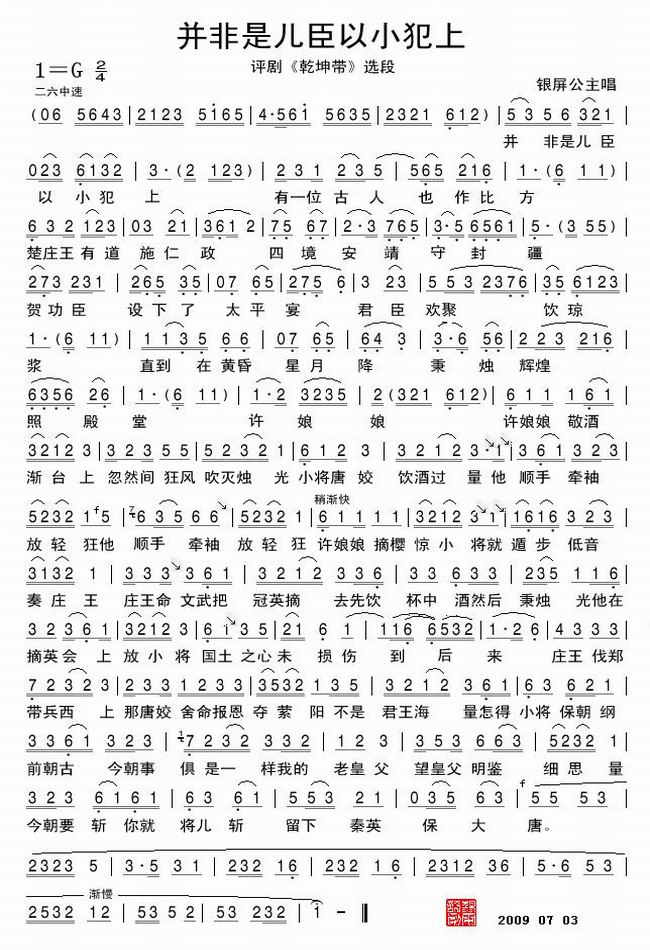 并非是儿臣以小犯上
1＝G 2/4
评剧《乾坤带》选段
二六中速
银屏公主唱
(06 5643 | 2123 5165 | 4·561 5635 | 2321 612) | 5 3 5 6 321 |
并 非是儿 臣
023 6132 | 3·(2 123) | 231 235 | 565 216 | 1·(6 11) |
以 小 犯 上 有一位 古 人 也 作 比 方
632 123 | 03 21 | 3612 | 75 67 | 2·3 765 | 3·5 6561 | 5·(3 55) |
楚庄王 有 道 施 仁 政 四 境 安 靖 守 封 疆
273 231 | 265 35 | 07 65 | 275 6 | 3 23 | 553 2376 | 35 6123 |
贺功臣 设 下 了 太 平 宴 君 臣 欢聚 饮 琼
1·(6 11) | 1135 66 | 07 65 | 64 3 | 3·6 56 | 223 216 |
浆 直到 在 黄昏 星 月 降 秉 烛 辉煌
6356 26 | 1·(6 11) | 1·2 3235 | 2(321 612) | 611 161 |
照 殿 堂 许 娘 娘 许娘娘 敬酒
3212 3 | 32355 | 52321 | 6123 | 32123·1 | 6361 323 |
渐 台 上 忽然间 狂风 吹灭烛 光 小将唐 姣 饮酒过 量 他 顺手 牵袖
稍渐快
放 轻 狂他 顺手 牵袖 放 轻 狂 许娘娘 摘樱 惊 小 将就 遁 步 低音
3132 1 | 333 361 | 3212 336 | 33 633 | 235 116 |
奏 庄 王 庄王命 文武把 冠英摘 去先饮 杯中 酒然后 秉烛 光他在
摘英会 上 放 小 将 国土 之心 未 损 伤 到 后 来 庄王 伐郑
723 23 | 233 1233 | 3532 135 | 3212 361 | 63 621 |
带兵西 上 那唐姣 舍命报恩 夺 萦 阳 不是 君王海 量怎得 小将 保朝 纲
前朝古 今朝事 俱 是一 样我的 老皇 父 望皇父 明鉴 细 思 量
323 6161 | 63 61 | 553 21 | 035 63 | 55 53 |
今朝要 斩 你就 将儿 斩 留下 秦英 保 大 唐。
2323 5 | 3·5 31 | 232 16 | 232 16 | 2312 36 | 5·6 53 |
渐慢
2532 12 | 53 52 | 53 232 | 1 － ‖
2009 07 03